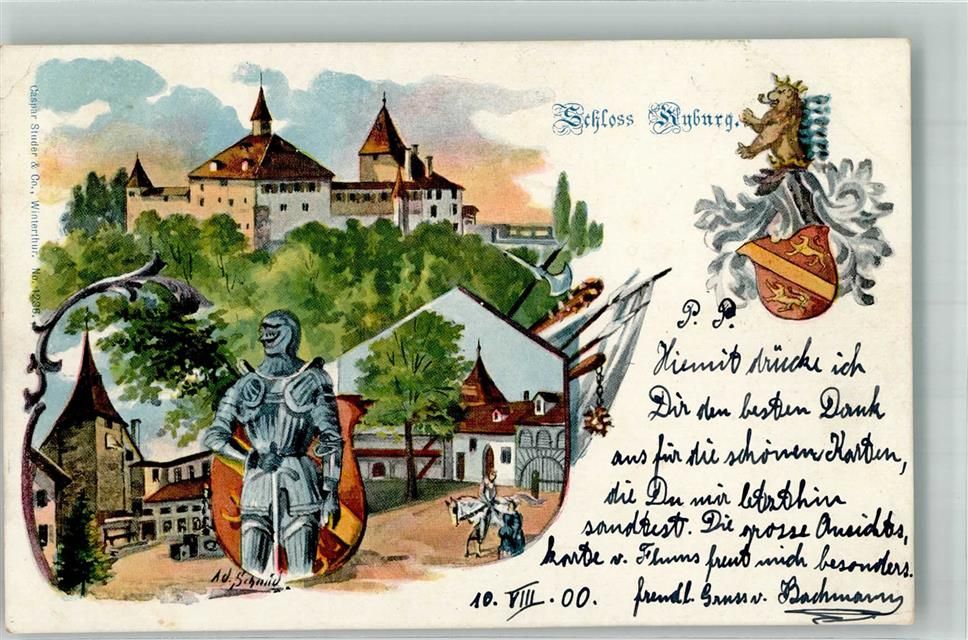 Schloss Kyburg.
Caspar Studer & Co., Winterthur. No.
P. P.
Hiemit drücke ich
Dir den besten Dank
aus für die schönen Karten,
die Du mir letzthin
sandtest. Die grosse Ansichts,
karte v. Flums freut mich besonders.
10. VIII. 00. freundl. Gruss v. Bachmann
Ad. Schmid